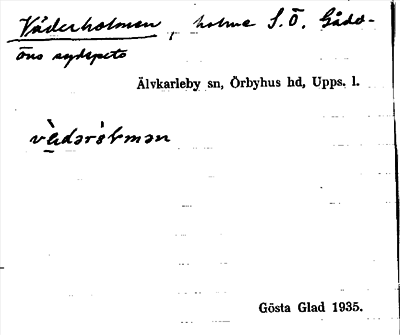 Väderholmen, holme S.Ö. Gådd-
öns sydspets
Älvkarleby sn, Örbyhus hd, Upps. l.
Gösta Glad 1935.